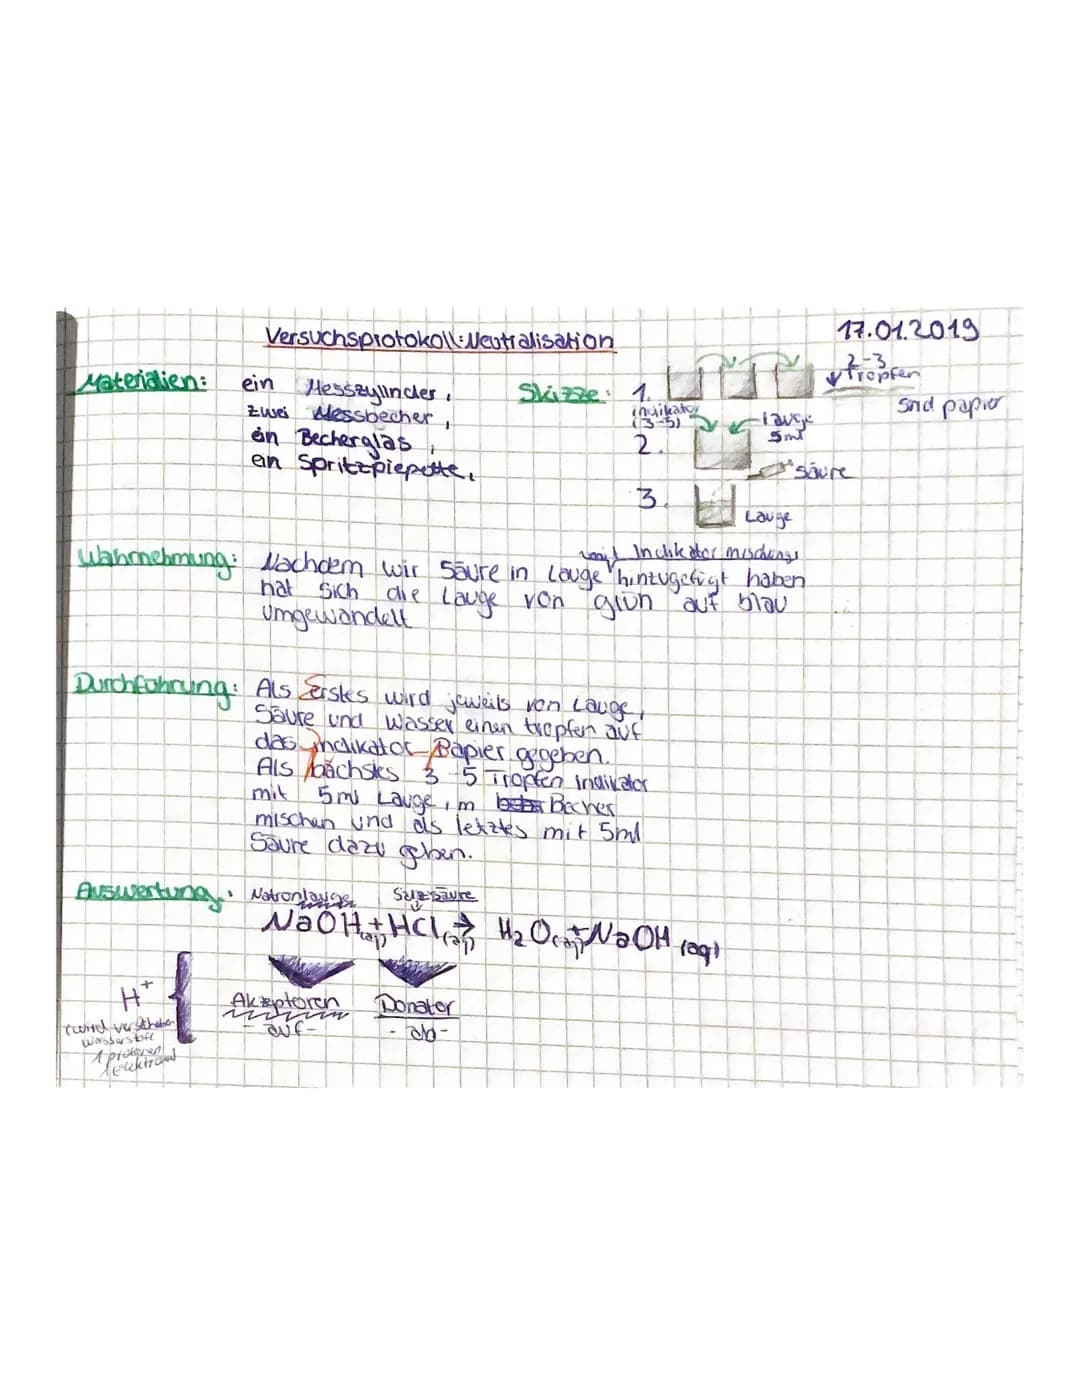 Versuchsprotokoll: Neutralisation
17.01.2019
Materialien: ein Messzylinder,
zwei Messbecher,
ein Becherglas,
ein Spritzpiepette.
Skizze: 1.
2-3
Tropfen
papier
indikator
(3-5)
Lauge
5ml
2.
Säure
3.
Lauge
mit Indikator mischung
Wahrnehmung: Nachdem wir Säure in Lauge hinzugefügt haben
hat sich die Lauge von grün auf blau
umgewandelt
Durchführung: Als Erstes wird jeweils von Lauge,
Säure und Wasser einen tropfen auf
das Indikator-Papier gegeben.
Als Nächstes 3-5 Tropfen Indikator
mit 5ml Lauge im Becher
mischen und als letztes mit 5ml
Säure dazu geben.
Auswertung: Natronlauge Salzsäure
NaOH(aq) + HCl(aq) → H2O(aq) + NaOH (aq)
Akzeptoren Donator
-auf- -ab-
H+
Wasserstoff